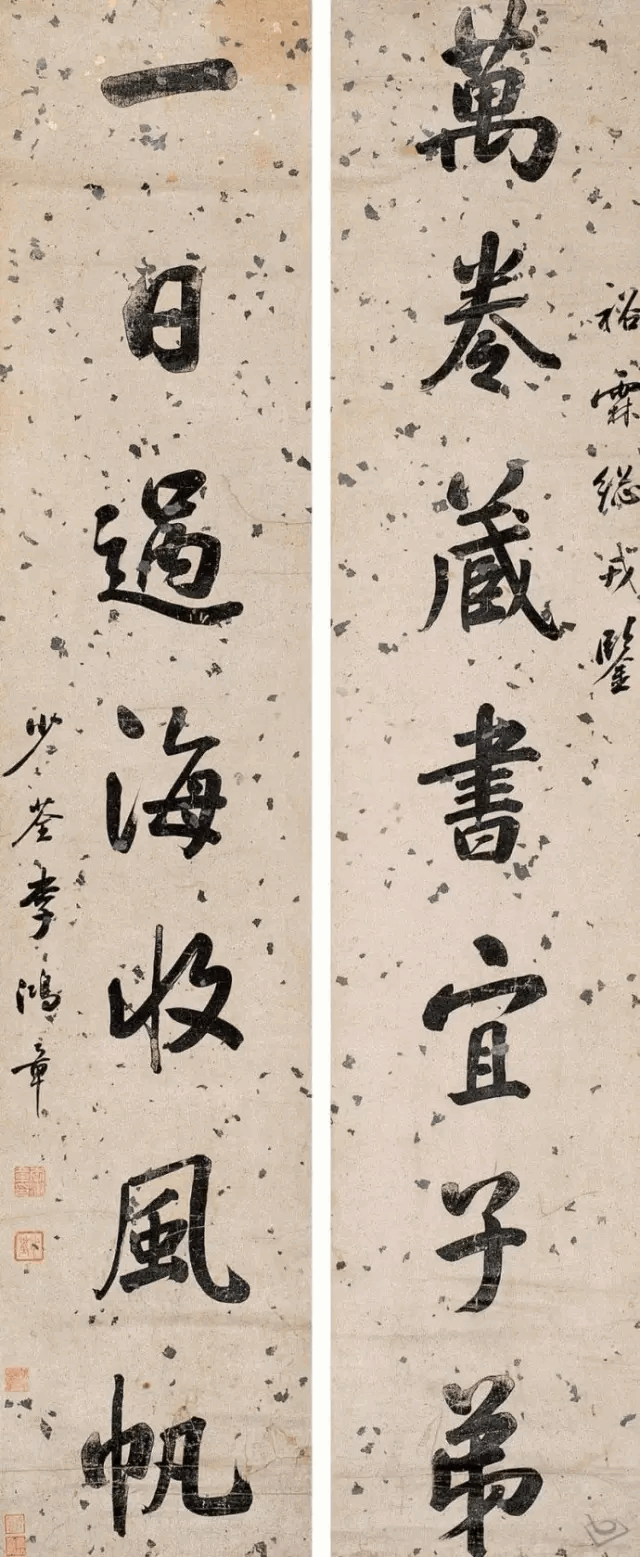 裕霖總戎鑒
萬卷藏書宜子弟
一日過海收風帆
少荃李鴻章